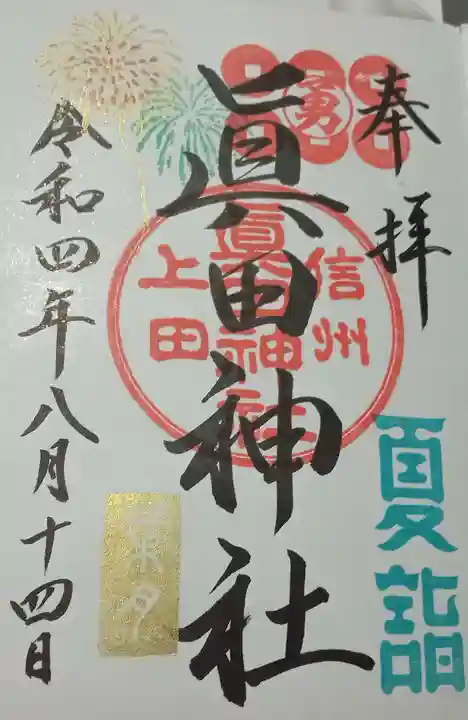 奉拝
夏詣
勇
信州
眞田神社
上田
眞田神社
令和四年八月十四日